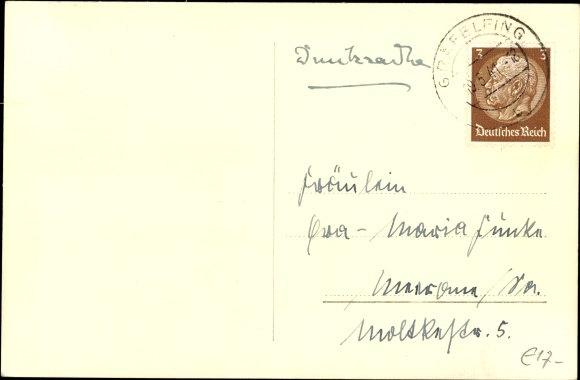 Drucksache
GRÄFELFING
3 3
Deutsches Reich
Fräulein
Eva-Maria Funke
Meerane/Sa.
Moltkestr. 5.
€17-